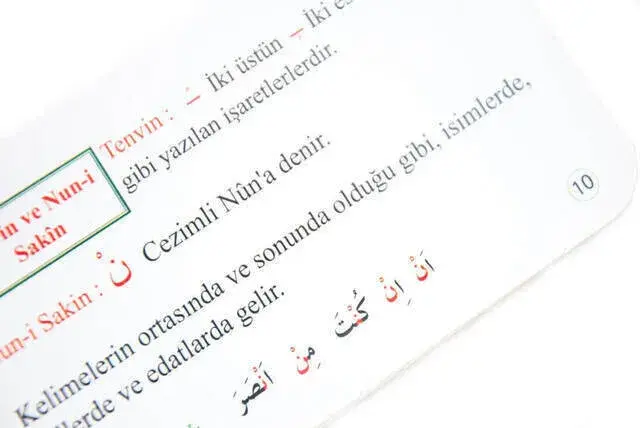 Tenvin : ـً İki üstün ـٍ İki es
gibi yazılan işaretlerlerdir.
in ve Nun-i
Sakîn
un-i Sakin : نْ Cezimli Nûn'a denir.
Kelimelerin ortasında ve sonunda olduğu gibi, isimlerde,
illerde ve edatlarda gelir.
اَنْ اِنْ كُنْتَ مِنْ اَنْصَرَ
10